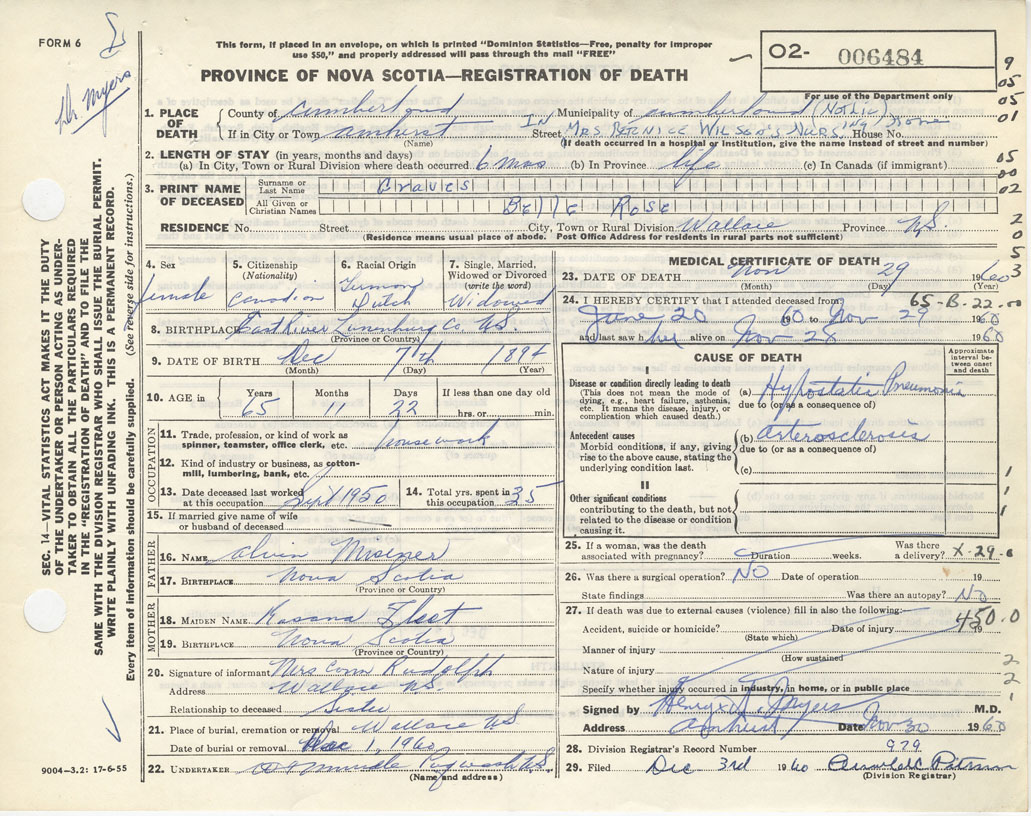 FORM 6
Dr. Myers
This form, if placed in an envelope, on which is printed "Dominion Statistics—Free, penalty for improper
use $50," and properly addressed will pass through the mail "FREE"
PROVINCE OF NOVA SCOTIA—REGISTRATION OF DEATH
O2- 006484
For use of the Department only
9
05
05
01
05
00
02
2
0
5
3
SEC. 14—VITAL STATISTICS ACT MAKES IT THE DUTY
OF THE UNDERTAKER OR PERSON ACTING AS UNDER-
TAKER TO OBTAIN ALL THE PARTICULARS REQUIRED
IN THE "REGISTRATION OF DEATH" AND FILE THE
SAME WITH THE DIVISION REGISTRAR WHO SHALL ISSUE THE BURIAL PERMIT.
WRITE PLAINLY WITH UNFADING INK. THIS IS A PERMANENT RECORD.
Every item of information should be carefully supplied. (See reverse side for instructions.)
9004-3.2: 17-6-55
1. PLACE OF DEATH
County of Cumberland Municipality of Cumberland
If in City or Town Amherst IN Street MRS BERNICE WILSON'S NURSING Home House No.
(Name) (If death occurred in a hospital or institution, give the name instead of street and number)
2. LENGTH OF STAY (in years, months and days)
(a) In City, Town or Rural Division where death occurred 6 mos (b) In Province life (c) In Canada (if immigrant)
3. PRINT NAME OF DECEASED
Surname or Last Name Graves
All Given or Christian Names BELLE ROSE
RESIDENCE No. Street City, Town or Rural Division Wallace Province N.S.
(Residence means usual place of abode. Post Office Address for residents in rural parts not sufficient)
4. Sex female
5. Citizenship (Nationality) Canadian
6. Racial Origin German Dutch
7. Single, Married, Widowed or Divorced (write the word) Widowed
8. BIRTHPLACE East River Lunenburg Co. N.S.
(Province or Country)
9. DATE OF BIRTH Dec 7th 1894
(Month) (Day) (Year)
10. AGE in Years 65 Months 11 Days 22 If less than one day hrs. or min.
OCCUPATION
11. Trade, profession, or kind of work as spinner, teamster, office clerk, etc. housework
12. Kind of industry or business, as cotton-mill, lumbering, bank, etc.
13. Date deceased last worked at this occupation Sept 1950 14. Total yrs. spent in this occupation 35
15. If married give name of wife or husband of deceased
FATHER
16. NAME Alvin
17. BIRTHPLACE Nova Scotia
(Province or Country)
MOTHER
18. MAIDEN NAME
19. BIRTHPLACE Nova Scotia
(Province or Country)
20. Signature of informant Mrs Rudolph
Address Wallace N.S.
Relationship to deceased Sister
21. Place of burial, cremation or removal Wallace NS
Date of burial or removal Dec 1, 1960
22. UNDERTAKER Pugwash N.S.
(Name and address)
MEDICAL CERTIFICATE OF DEATH
23. DATE OF DEATH Nov 29 1960
(Month) (Day) (Year)
24. I HEREBY CERTIFY that I attended deceased from 65-B-22-00
June 20 1960 to Nov 29 1960
and last saw her alive on Nov 28 1960
CAUSE OF DEATH
Approximate interval between onset and death
Disease or condition directly leading to death
(This does not mean the mode of dying, e.g., heart failure, asthenia, etc. It means the disease, injury, or complication which caused death.)
(a) Hypostatic Pneumonia
due to (or as a consequence of)
Antecedent causes
Morbid conditions, if any, giving rise to the above cause, stating the underlying condition last.
(b) Arterosclerosis
due to (or as a consequence of)
(c)
II
Other significant conditions contributing to the death, but not related to the disease or condition causing it.
1
1
1
25. If a woman, was the death associated with pregnancy? Duration weeks. Was there a delivery? X-29.6
26. Was there a surgical operation? NO Date of operation 19
State findings Was there an autopsy? No
27. If death was due to external causes (violence) fill in also the following:
450.0
Accident, suicide or homicide? Date of injury 19
(State which)
Manner of injury
(How sustained)
Nature of injury
Specify whether injury occurred in industry, in home, or in public place
2
2
1
Signed by Henry Myers M.D.
Address Amherst Date Nov 30 1960
28. Division Registrar's Record Number 979
29. Filed Dec 3rd 1960
(Division Registrar)